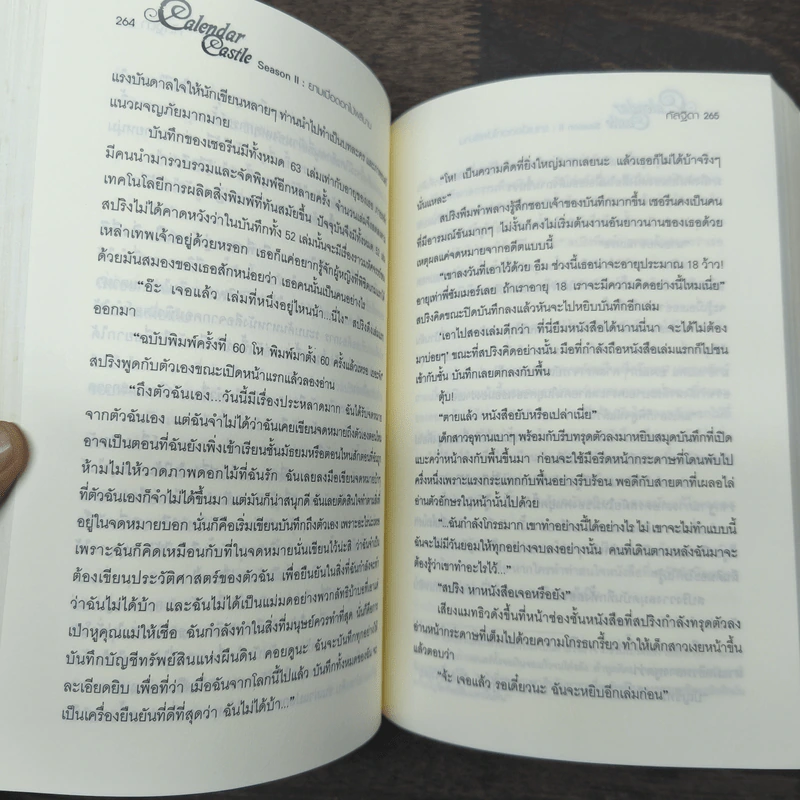 264
Calendar
Castle
Season II : ยามเมื่อดอกไม้ผลิบาน
แรงบันดาลใจให้นักเขียนหลายๆ ท่านนำไปทำเป็นบทละคร
แนวผจญภัยมากมาย
บันทึกของเชอรีนมีทั้งหมด 63 เล่มเท่ากับอายุของเธอ
มีคนนำมารวบรวมและจัดพิมพ์อีกหลายครั้ง จำนวนเล่มจึงลดลงตาม
เทคโนโลยีการผลิตสิ่งพิมพ์ที่ทันสมัยขึ้น ปัจจุบันจึงมีทั้งหมด
สปริงไม่ได้คาดหวังว่าในบันทึกทั้ง 52 เล่มนั้นจะมีเรื่องราว
เหล่าเทพเจ้าอยู่ด้วยหรอก เธอก็แค่อยากรู้จักผู้หญิงที่
ด้วยมันสมองของเธอสักหน่อยว่า เธอคนนั้นเป็นคนอย่างไร
“อ๊ะ เจอแล้ว เล่มที่หนึ่งอยู่ไหนน้า...นี่ไง” สปริงดึง
ออกมา
“ฉบับพิมพ์ครั้งที่ 60 โห พิมพ์มาตั้ง 60 ครั้งแล้ว
สปริงพูดกับตัวเองขณะเปิดหน้าแรกแล้วลองอ่าน
“ถึงตัวฉันเอง...วันนี้มีเรื่องประหลาดมาก ฉันได้รับจดหมาย
จากตัวฉันเอง แต่ฉันจำไม่ได้ว่าฉันเคยเขียนจดหมายถึงตัวเองตอนไหน
อาจเป็นตอนที่ฉันยังเพิ่งเข้าเรียนชั้นมัธยมหรือตอนไหนสักตอนที่
ห้ามไม่ให้วาดภาพดอกไม้ที่ฉันรัก ฉันเลยลงมือเขียนจดหมาย
ที่ตัวฉันเองก็จำไม่ได้ขึ้นมา แต่มันก็น่าสนุกดี ฉันเลยตัดสินใจทำตามสิ่งที่
อยู่ในจดหมายบอก นั่นก็คือเริ่มเขียนบันทึกถึงตัวเอง เพราะอะไรน่ะเหรอ
เพราะฉันก็คิดเหมือนกับที่ในจดหมายนั่นเขียนไว้น่ะสิ ว่าฉันจำเป็น
ต้องเขียนประวัติศาสตร์ของตัวฉัน เพื่อยืนยันในสิ่งที่ฉันกำลังทำ
ว่าฉันไม่ได้บ้า และฉันไม่ได้เป็นแม่มดอย่างพวกลัทธิบ้าบอที่
เป่าหูคุณแม่ให้เชื่อ ฉันกำลังทำในสิ่งที่มนุษย์ควรทำที่สุด นั่นก็คือการ
บันทึกบัญชีทรัพย์สินแห่งผืนดิน คอยดูนะ ฉันจะบันทึกทุกอย่าง
ละเอียดยิบ เพื่อที่ว่า เมื่อฉันจากโลกนี้ไปแล้ว บันทึกทั้งหมดของฉันจะ
เป็นเครื่องยืนยันที่ดีที่สุดว่า ฉันไม่ได้บ้า...”
กัลฐิดา 265
“โห! เป็นความคิดที่ยิ่งใหญ่มากเลยนะ แล้วเธอก็ไม่ได้บ้าจริงๆ
นั่นแหละ”
สปริงพึมพำพลางรู้สึกชอบเจ้าของบันทึกมากขึ้น เชอรีนคงเป็นคน
ที่มีอารมณ์ขันมากๆ ไม่งั้นก็คงไม่เริ่มต้นงานอันยาวนานของเธอด้วย
เหตุผลแค่จดหมายจากอดีตแบบนี้
“เขาลงวันที่เอาไว้ด้วย อืม ช่วงนี้เธอน่าจะอายุประมาณ 18 ว้าว!
อายุเท่าพี่ซัมเมอร์เลย ถ้าเราอายุ 18 เราจะมีความคิดอย่างนี้ไหมเนี่ย”
สปริงคิดขณะปิดบันทึกลงแล้วหันจะไปหยิบบันทึกอีกเล่ม
“เอาไปสองเล่มดีกว่า ที่นี่ยืมหนังสือได้นานนี่นา จะได้ไม่ต้อง
มาบ่อยๆ” ขณะที่สปริงคิดอย่างนั้น มือที่กำลังถือหนังสือเล่มแรกก็ไปชน
เข้ากับชั้น บันทึกเลยตกลงกับพื้น
ตุ้บ!
“ตายแล้ว หนังสือยับหรือเปล่าเนี่ย”
เด็กสาวอุทานเบาๆ พร้อมกับรีบทรุดตัวลงมาหยิบสมุดบันทึกที่เปิด
แบะคว่ำหน้าลงกับพื้นขึ้นมา ก่อนจะใช้มือรีดหน้ากระดาษที่โดนพับไป
ครึ่งหนึ่งเพราะแรงกระแทกกับพื้นอย่างรีบร้อน พอดีกับสายตาที่เผลอไล่
อ่านตัวอักษรในหน้านั้นไปด้วย
“...ฉันกำลังโกรธมาก เขาทำอย่างนี้ได้อย่างไร ไม่ เขาจะไม่ทำแบบนี้
ฉันจะไม่มีวันยอมให้ทุกอย่างจบลงอย่างนั้น คนที่เดินตามหลังฉันมาจะ
ต้องรู้ว่าเขาทำอะไรไว้...”
“สปริง หาหนังสือเจอหรือยัง”
เสียงแมทธิวดังขึ้นที่หน้าช่องชั้นหนังสือที่สปริงกำลังทรุดตัวลง
อ่านหน้ากระดาษที่เต็มไปด้วยความโกรธเกรี้ยว ทำให้เด็กสาวเงยหน้าขึ้น
แล้วตอบว่า
“จ้ะ เจอแล้ว รอเดี๋ยวนะ ฉันจะหยิบอีกเล่มก่อน”